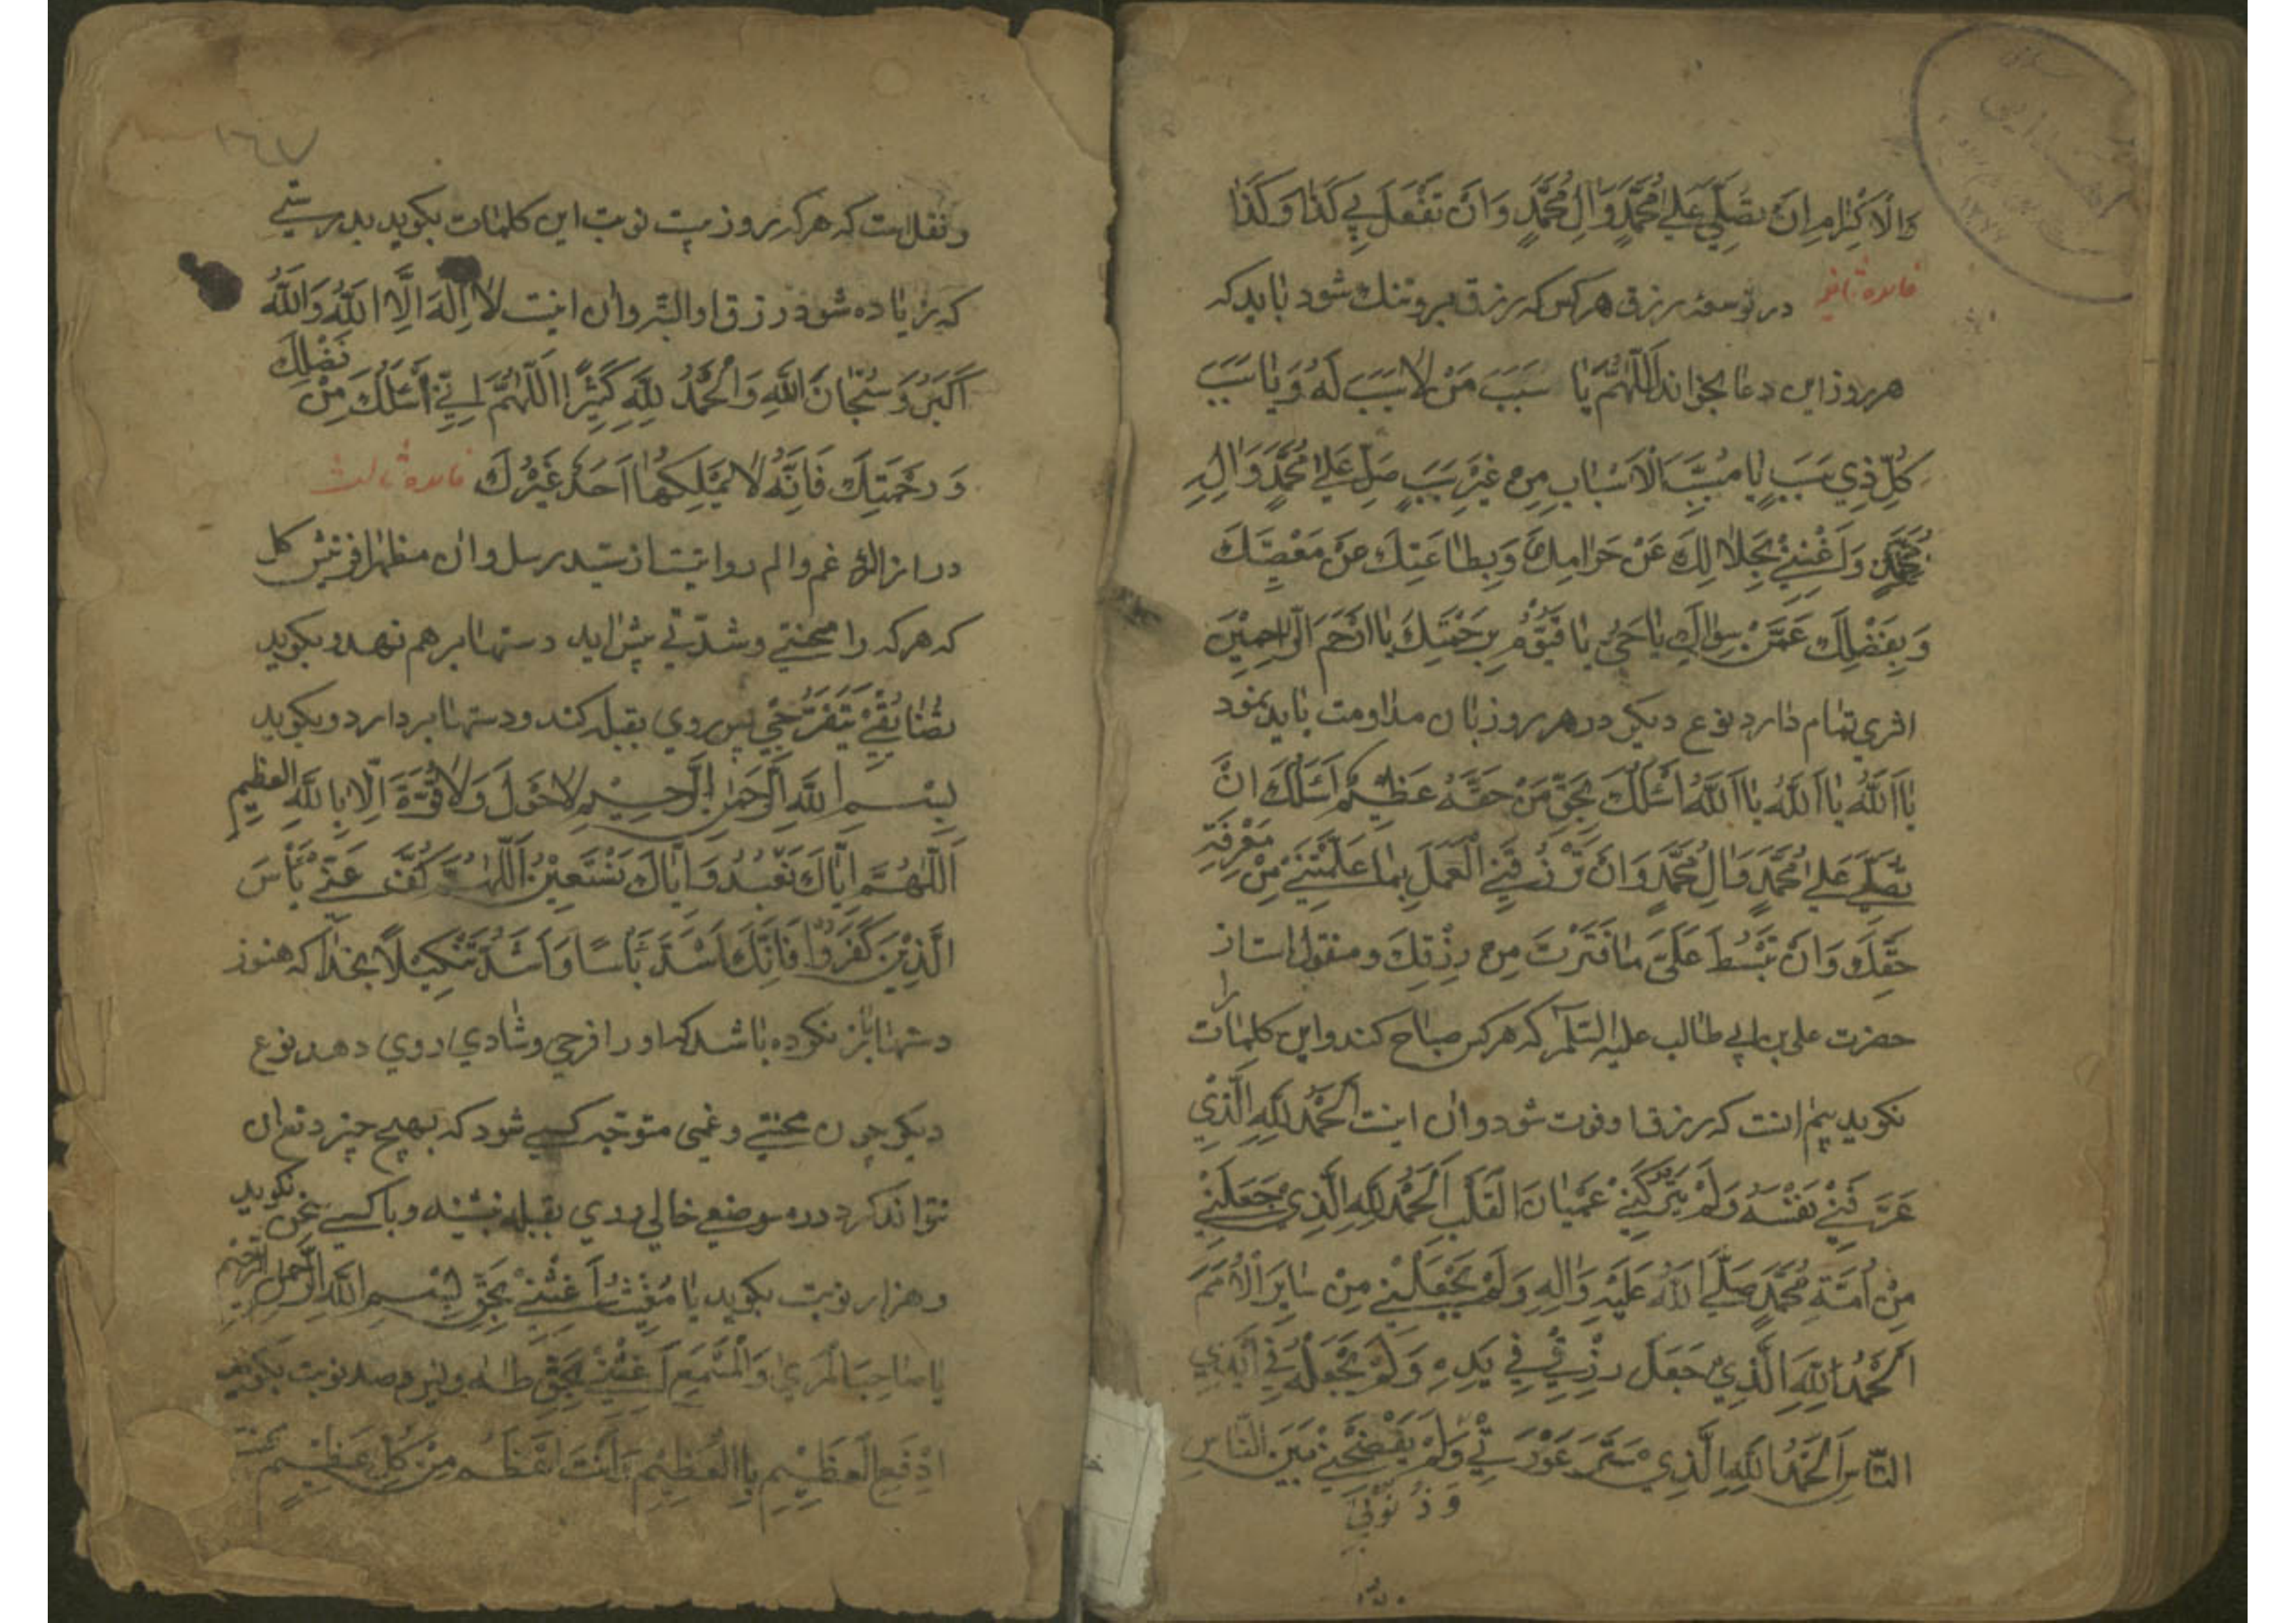 وَالْاِكْرٰامِ اِنَ تُصَلِّيَ عَلٰي مُحَمَّدٍ وَاٰلِ مُحَمَّدٍ وَاَنْ تَفْعَلَ بِي كَذٰا وَكَذٰا
فایده ثانیه در توسعه رزق هرکس که رزق برو تنک شود باید که
هر روز این دعا بخواند اَللّٰهُمَّ يٰا سَبَبَ مَنْ لٰا سَبَبَ لَهُ وَيٰا سَبَبَ
كُلِّ ذِي سَبَبٍ يٰا مُسَبِّبَ الْاَسْبٰابِ مِنْ غَيْرِ سَبَبٍ صَلِّ عَلٰي مُحَمَّدٍ وَاٰلِ
مُحَمَّدٍ وَاَغْنِنِيْ بِحَلٰالِكَ عَنْ حَرٰامِكَ وَبِطٰاعَتِكَ عَنْ مَعْصِيَتِكَ
وَبِفَضْلِكَ عَمَّنْ سِوٰاكَ يٰا حَيُّ يٰا قَيُّوْمُ بِرَحْمَتِكَ يٰا اَرْحَمَ الرّٰاحِمِيْنَ
اثری تمام دارد نوع دیکر در هر روز بان مداومت باید نمود
يٰا اَللّٰهُ يٰا اَللّٰهُ يٰا اَللّٰهُ اَسْئَلُكَ بِحَقِّ مَنْ حَقُّهُ عَظِيْمٌ اَسْئَلُكَ انَّ
تُصَلِّيَ عَلٰي مُحَمَّدٍ وَاٰلِ مُحَمَّدٍ وَاَنْ تَرْزُقَنِي الْعَمَلَ بِمٰا عَلَّمْتَنِيْ مِنْ مَعْرِفَةِ
حَقِّكَ وَاَنْ تَبْسُطَ عَلَيَّ مٰا قَتَرْتَ مِنْ رِزْقِكَ ومنقول است از
حضرت علی بن ابی طالب علیه السّلام که هرکس صباح کند و این کلمات را
نکوید بیم انست که رزق او فوت شود و ان اینت اَلْحَمْدُ لِلّٰهِ الَّذِيْ
عَرَّفَنِيْ نَفْسَهُ وَلَمْ يَتْرُكْنِيْ عَمْيٰانَ الْقَلْبِ اَلْحَمْدُ لِلّٰهِ الَّذِيْ جَعَلَنِيْ
مِنْ اُمَّةِ مُحَمَّدٍ صَلَّي اللّٰهُ عَلَيْهِ وَاٰلِهِ وَلَمْ يَجْعَلْنِيْ مِنْ سٰايِرِ الْاُمَمِ
اَلْحَمْدُ لِلّٰهِ الَّذِيْ جَعَلَ رِزْقِيْ فِيْ يَدِهِ وَلَمْ يَجْعَلْهُ فِيْ اَيْدِي
النّٰاسِ اَلْحَمْدُ لِلّٰهِ الَّذِيْ سَتَرَ عَوْرَتِيْ وَلَمْ يَفْضَحْنِيْ بَيْنَ النّٰاسِ
وَذُنُوْبِيْ
١٦٧
و نقلست که هرکه روز بیست نوبت این کلمات بکوید بدرستی
که زیاده شود رزق او البتّه وان اینت لٰا اِلٰهَ اِلَّا اللّٰهُ وَاللّٰهُ
اَكْبَرُ وَسُبْحٰانَ اللّٰهِ وَالْحَمْدُ لِلّٰهِ كَثِيْرًا اَللّٰهُمَّ اِنِّيْ اَسْئَلُكَ مِنْ فَضْلِكَ
وَرَحْمَتِكَ فَاِنَّهُ لٰا يَمْلِكُهٰا اَحَدٌ غَيْرُكَ فایده ثالث
در ازاله غم و الم روایتست از سید رسل وان مظهر افرینش کل
که هرکه را محنتی و شدّتی پیش اید دستها بر هم نهد و بکوید
تَضٰايَقِيْ تَتَفَرَّجِيْ پس روی بقبله کند و دستها بردارد و بکوید
بِسْمِ اللّٰهِ الرَّحْمٰنِ الرَّحِيْمِ لٰا حَوْلَ وَلٰا قُوَّةَ اِلّٰا بِاللّٰهِ العَظِيْمِ
اَللّٰهُمَّ اِيّٰاكَ نَعْبُدُ وَاِيّٰاكَ نَسْتَعِيْنُ اَللّٰهُمَّ كُفَّ عَنِّيْ بَأْسَ
الَّذِيْنَ كَفَرُوْا فَاِنَّكَ اَشَدُّ بَأْسًا وَاَشَدُّ تَنْكِيْلًا بخدا که هنوز
دستها باز نکرده باشد که او را فرحی و شادی روی دهد نوع
دیکر چون محنتی و غمی متوجه کسی شود که بهیچ چیز دفع ان
نتواند کرد در موضعی خالی روی بقبله نشیند و با کسی سخن نکوید
و هزار نوبت بکوید يٰا مُغِيْثُ اَغِثْنِيْ بِحَقِّ بِسْمِ اللّٰهِ الرَّحْمٰنِ الرَّحِيْمِ
اَغِثْنِيْ بِحَقِّ طٰهٰ و صد نوبت بکوید
اِدْفَعِ الْعَظِيْمِ بِالْعَظِيْمِ وَاَنْتَ اَعْظَمُ مِنْ كُلِّ عَظِيْمٍ